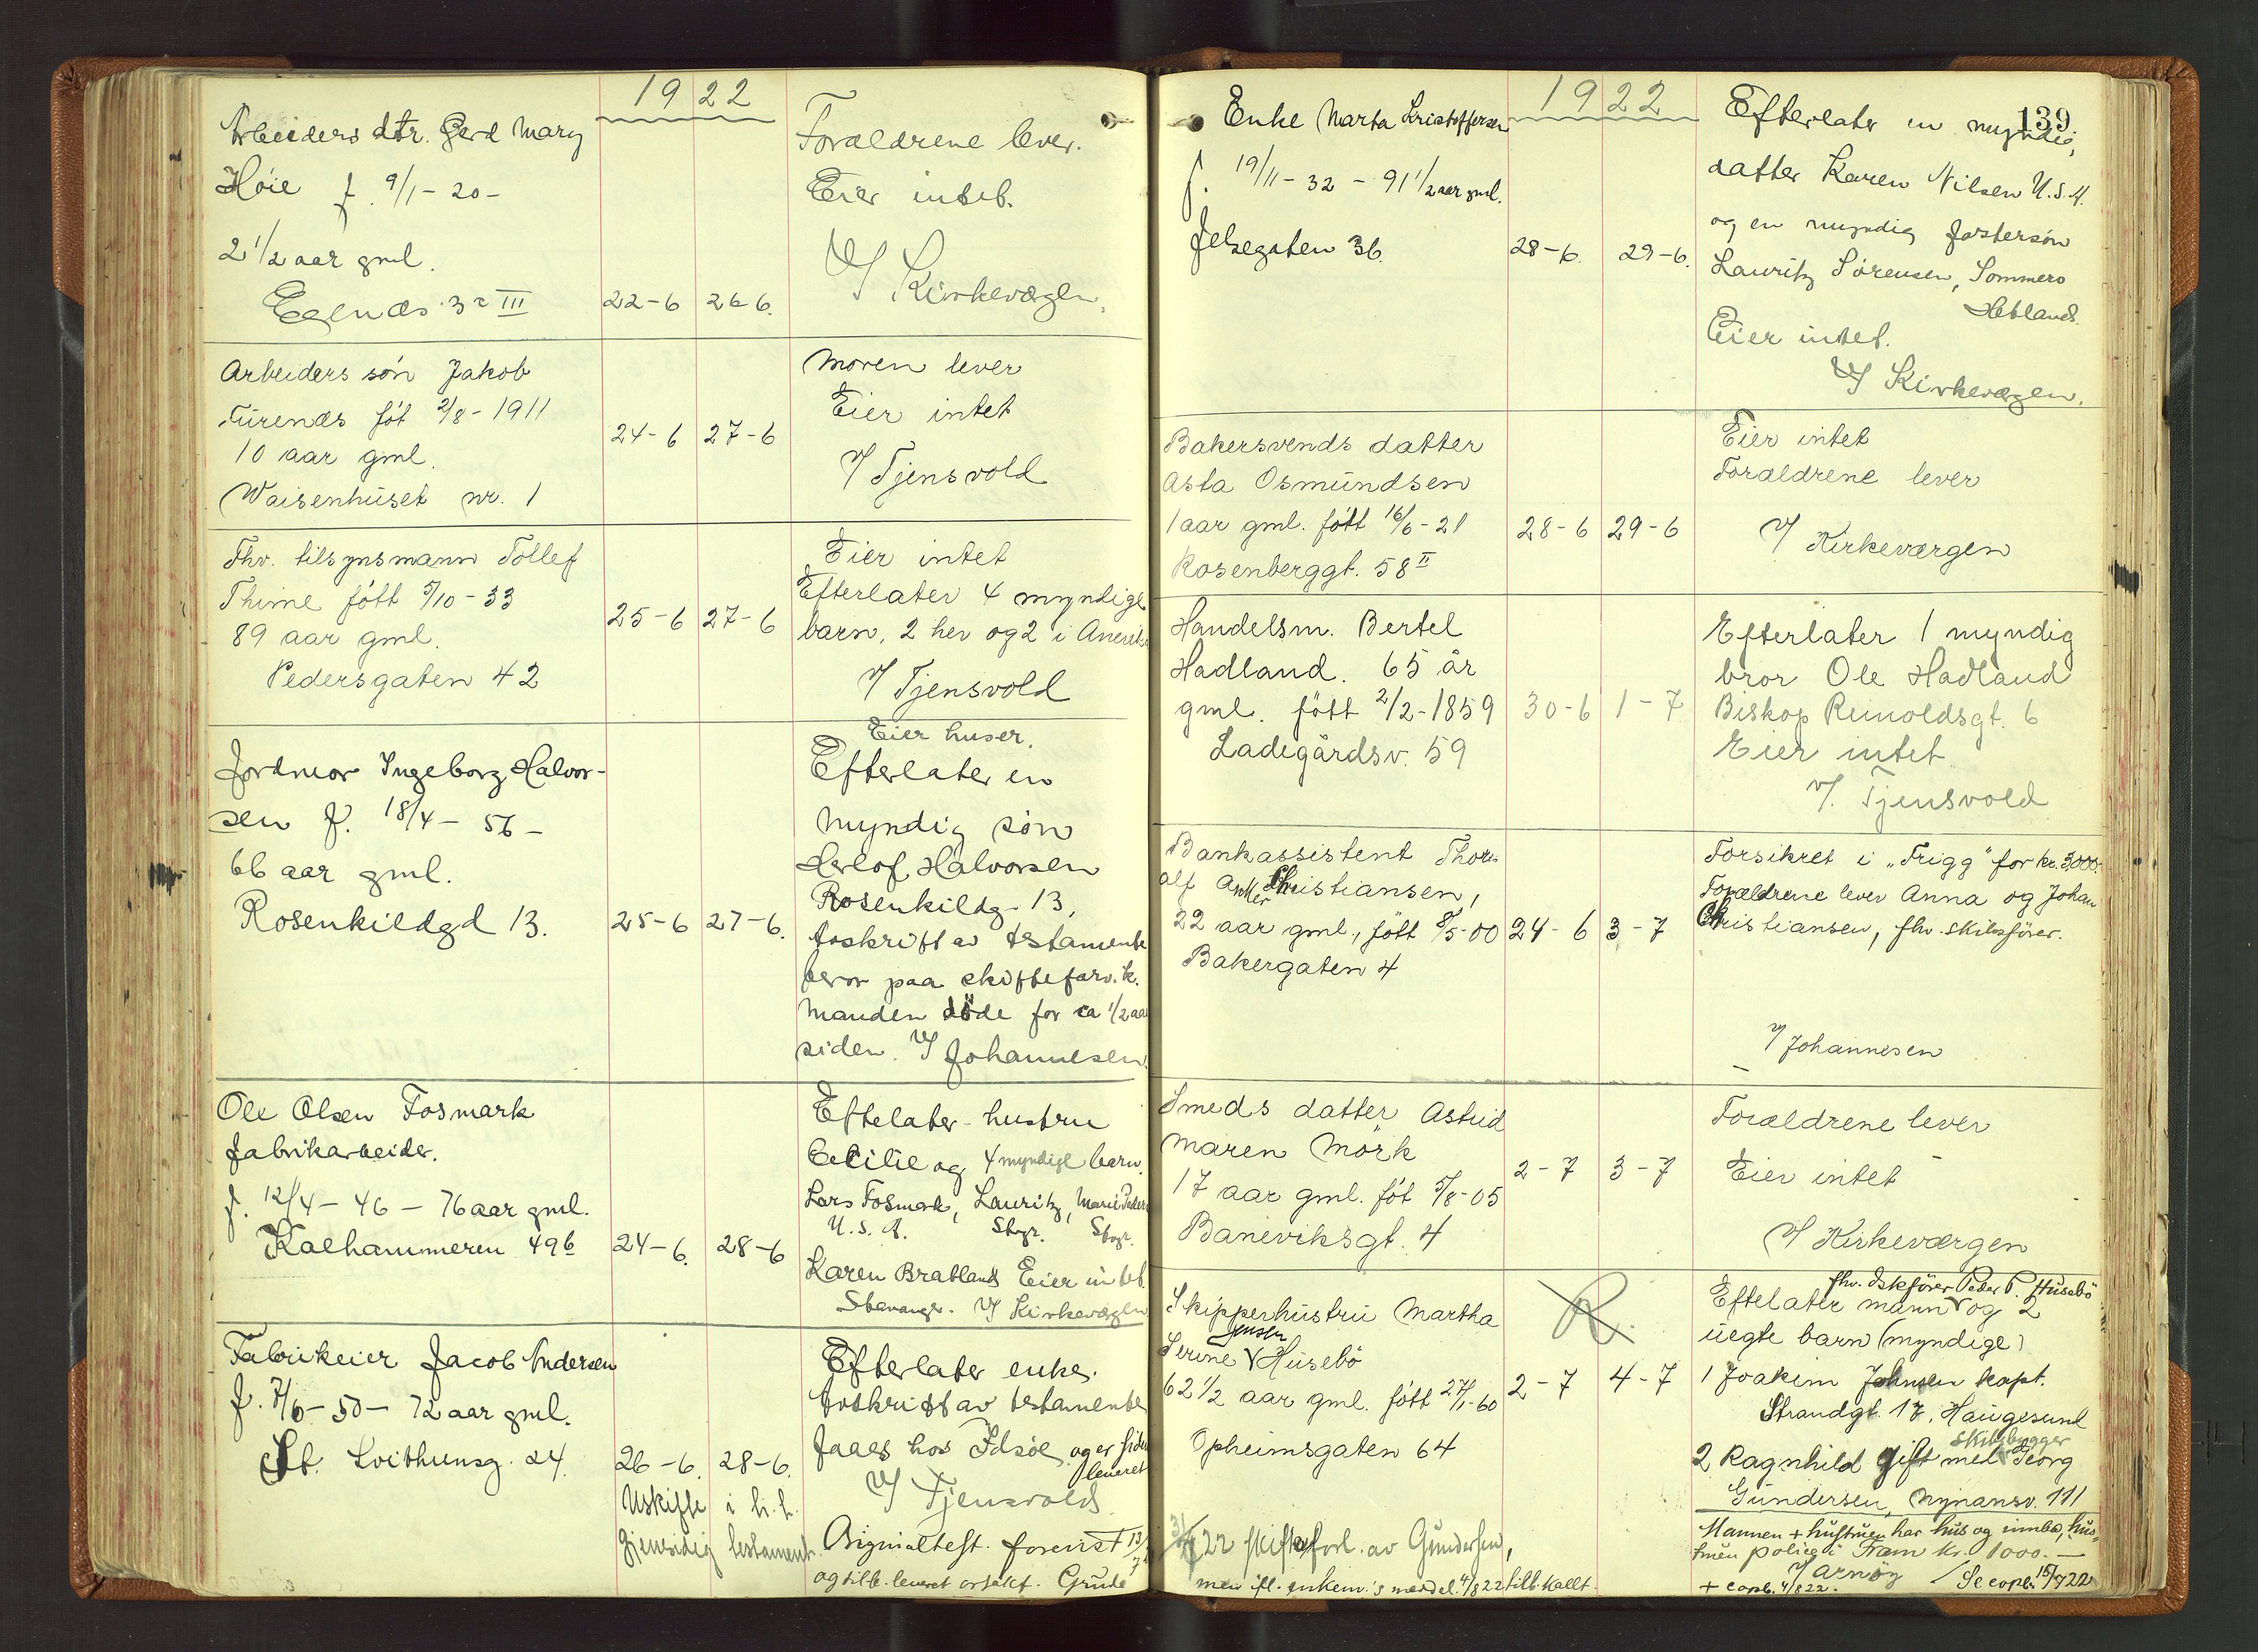 1922
Arbeiders dtr. Gerd Mary
Höie f. 9/1-20-
2 1/2 aar gml.
Egenæs 3 III
22-6 26-6.
Foraldrene lever.
Eier intet.
V/ Kirkevergen.
Arbeiders sön Jakob
Turenæs föt 2/8-1911
10 aar gml.
Waisenhuset nr. 1
24-6 27-6
Moren lever
Eier intet
V/ Tjensvold
Fhv. tilsynsmann Tollef
Thime fött 5/10-33
89 aar gml.
Pedersgaten 42
25-6 27-6
Eier intet
Efterlater 4 myndige
barn, 2 her og 2 i Amerika
V/ Tjensvold
Jordmor Ingeborg Halvor-
sen f. 18/4-56-
66 aar gml.
Rosenkildgd 13.
25-6 27-6.
Eier huser.
Efterlater en
myndig sön
Herlof Halvorsen
Rosenkildg. 13,
Avskrift av testamente
beror paa skiftefarv.k.
Manden döde for ca 1/2 aar
siden. V/ Johannesen.
Ole Olsen Fosmark
fabrikarbeider.
f. 12/4-46-76 aar gml.
Kalhammeren 49 b
24-6. 28-6
Eftelater hustru
Cecilie og 4 myndige barn.
Lars Fosmark, Lauritz, Marie
U.S.A. Stvgr. Stvgr.
Karen Bratland Eier intet.
Stavanger. V/ Kirkevergen
Fabrikeier Jacob Andersen
f. 7/6-50-72 aar gml.
St. Svithunsg. 24.
26-6. 28-6.
Uskifte i h.t.
gjensidig testament.
Efterlater enke.
Avskrift av testamente
faaes hos Idsöe og er siden
leveret
V/ Tjensvold
Originaltest. forevist 13/7
og tilb. leveret avsakf. Grude
139
1922
Enke Marta Kristoffersen
f. 19/11-32-91 1/2 aar gml.
Jelsegaten 36.
28-6. 29-6.
Efterlater en myndig,
datter Karen Nilsen U.S.A.
og en myndig fostersön
Lauritz Sörensen, Sommero
Hetland.
Eier intet.
V/ Kirkevergen.
Bakersvends datter
Asta Osmundsen
1 aar gml. fött 16/6-21
Rosenberggt. 58 II
28-6 29-6
Eier intet
Foraldrene lever
V/ Kirkeværgen
Handelsm. Bertel
Hadland. 65 år
gml. fött 2/2-1859
Ladegårdsv. 59
30-6 1-7
Efterlater 1 myndig
bror Ole Hadland
Biskop Reinoldsgt. 6
Eier intet
V/. Tjensvold
Bankassistent Thor-
alf Anker Christiansen,
22 aar gml., fött 8/5-00
Bakergaten 4
24-6 3-7
Forsikret i "Trigg" for kr. 3,000.-
Forældrene lever Anna og Johan
Christiansen, fhv. skibsförer.
V/ Johannesen
Smeds datter Astrid
Maren Mörk
17 aar gml. föt 5/8-05
Baneviksgt. 4
2-7 3-7
Forældrene lever
Eier intet
V/ Kirkeværgen
Skipperhustru Martha
Jensen
Serine V Husebö
62 1/2 aar gml. fött 27/1-60
Opheimsgaten 64
R.
2-7 4-7
fhv. Iskförer Peder P. Husebö
Eftelater mann V og 2
uegte barn (myndige)
1 Joakim Johnsen kapt.
Strandgt. 17, Haugesund
skibsbygger
2 Ragnhild gift med V Georg
Gundersen, Nymansv. 111
Mannen + hustruen har hus og innbo, hus-
truen police i Fram kr. 1000.-
V/ Arnöy
+ copb. 4/8 22. / Se copb. 15/7 22
22 skifte forl. av Gundersen,
men ifl. enkem.'s meddel. 4/8 22 tilb. kallt.